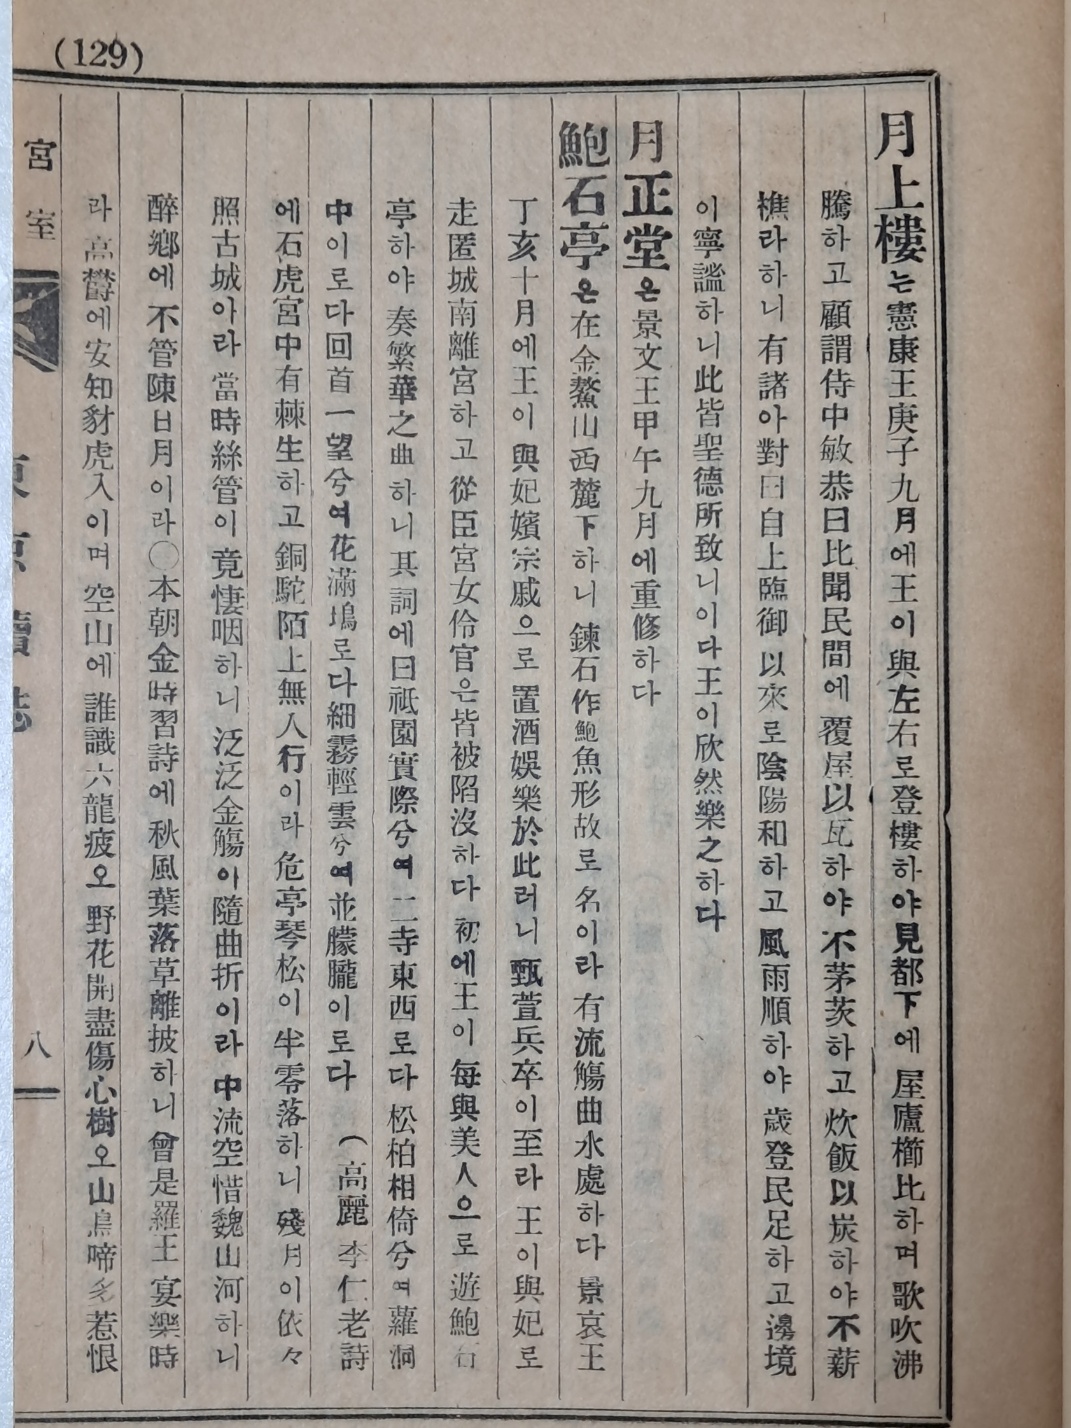 (129)
月上樓는憲康王庚子九月에王이與左右로登樓하야見都下에屋廬櫛比하며歌吹沸
騰하고顧謂侍中敏恭曰比聞民間에覆屋以瓦하야不茅茨하고炊飯以炭하야不薪
樵라하니有諸아對曰自上臨御以來로陰陽和하고風雨順하야歲登民足하고邊境
이寧謐하니此皆聖德所致니이다王이欣然樂之하다
月正堂은景文王甲午九月에重修하다
鮑石亭은在金鰲山西麓下하니鍊石作鮑魚形故로名이라有流觴曲水處하다景哀王
丁亥十月에王이與妃嬪宗戚으로置酒娛樂於此러니甄萱兵卒이至라王이與妃로
走匿城南離宮하고從臣宮女伶官은皆被陷沒하다初에王이每與美人으로遊鮑石
亭하야奏繁華之曲하니其詞에曰祗園實際兮여二寺東西로다松柏相倚兮여蘿洞
中이로다回首一望兮여花滿塢로다細霧輕雲兮여並朦朧이로다(高麗李仁老詩
에石虎宮中有棘生하고銅駝陌上無人行이라危亭琴松이半零落하니殘月이依々
照古城아라當時絲管이竟悽咽하니泛泛金觴이隨曲折이라中流空惜魏山河하니
醉鄕에不管陳日月이라〇本朝金時習詩에秋風葉落草離披하니曾是羅王宴樂時
라高欝에安知豺虎入이며空山에誰識六龍疲오野花開盡傷心樹오山鳥啼多惹恨
宮室
東京續誌
八